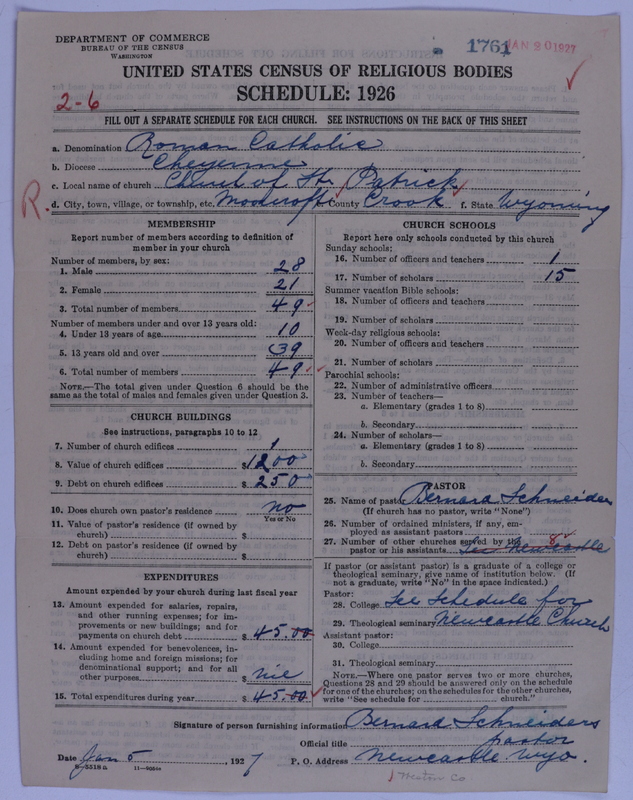 DEPARTMENT OF COMMERCE
BUREAU OF THE CENSUS
WASHINGTON
1761 JAN 20 1927
UNITED STATES CENSUS OF RELIGIOUS BODIES
SCHEDULE: 1926
2-6
FILL OUT A SEPARATE SCHEDULE FOR EACH CHURCH. SEE INSTRUCTIONS ON THE BACK OF THIS SHEET
a. Denomination Roman Catholic
b. Diocese Cheyenne
c. Local name of church Church of St. Patrick
R. d. City, town, village, or township, etc. Moorcroft e. County Crook f. State Wyoming
MEMBERSHIP
Report number of members according to definition of
member in your church
Number of members, by sex:
1. Male 28
2. Female 21
3. Total number of members 49
Number of members under and over 13 years old:
4. Under 13 years of age 10
5. 13 years old and over 39
6. Total number of members 49
NOTE.—The total given under Question 6 should be the
same as the total of males and females given under Question 3.
CHURCH BUILDINGS
See instructions, paragraphs 10 to 12
7. Number of church edifices 1
8. Value of church edifices $1200
9. Debt on church edifices $250
10. Does church own pastor's residence no
Yes or No
11. Value of pastor's residence (if owned by
church) $
12. Debt on pastor's residence (if owned by
church) $
EXPENDITURES
Amount expended by your church during last fiscal year
13. Amount expended for salaries, repairs,
and other running expenses; for im-
provements or new buildings; and for
payments on church debt $45.00
14. Amount expended for benevolences, in-
cluding home and foreign missions; for
denominational support; and for all
other purposes $nil
15. Total expenditures during year $45.00
CHURCH SCHOOLS
Report here only schools conducted by this church
Sunday schools:
16. Number of officers and teachers 1
17. Number of scholars 15
Summer vacation Bible schools:
18. Number of officers and teachers
19. Number of scholars
Week-day religious schools:
20. Number of officers and teachers
21. Number of scholars
Parochial schools:
22. Number of administrative officers
23. Number of teachers—
a. Elementary (grades 1 to 8)
b. Secondary
24. Number of scholars—
a. Elementary (grades 1 to 8)
b. Secondary
PASTOR
25. Name of pastor Bernard Schneider
(If church has no pastor, write "None")
26. Number of ordained ministers, if any, em-
ployed as assistant pastors
27. Number of other churches served by the 8
pastor or his assistants See Newcastle
If pastor (or assistant pastor) is a graduate of a college or
theological seminary, give name of institution below. (If
not a graduate, write "No" in the space indicated.)
Pastor:
28. College See Schedule for
29. Theological seminary Newcastle Church
Assistant pastor:
30. College
31. Theological seminary
NOTE.—Where one pastor serves two or more churches,
Questions 28 and 29 should be answered only on the schedule
for one of the churches; on the schedules for the other churches,
write "See schedule for church."
Signature of person furnishing information Bernard Schneiders
Official title pastor
Date Jan 5, 1927 P. O. Address Newcastle Wyo.
8—5518 a 11—9054
Weston Co